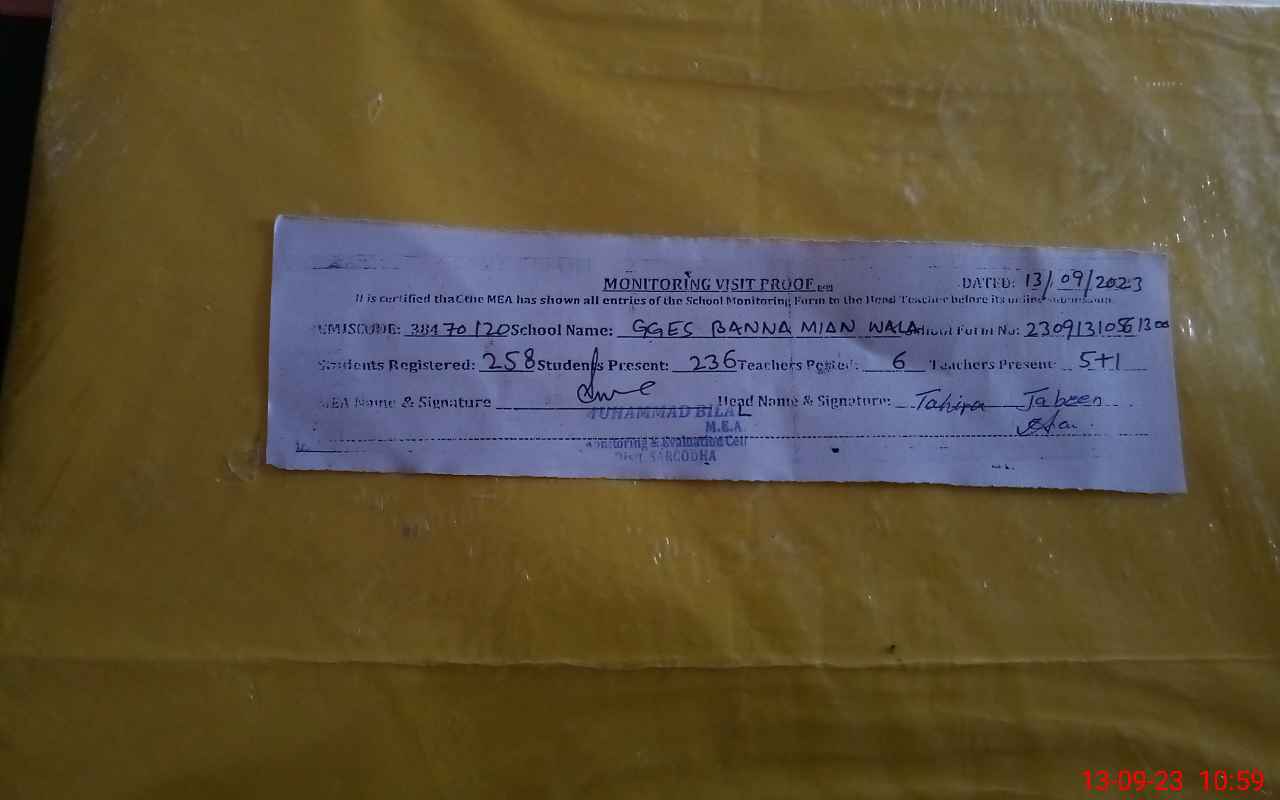 MONITORING VISIT PROOF DATED: 13/09/2023
It is certified that the MEA has shown all entries of the School Monitoring Form to the Head Teacher before its online submission.
EMISCODE: 38470120 School Name: GGES BANNA MIAN WALA School Form No:
Students Registered: 258 Students Present: 236 Teachers Posted: 6 Teachers Present: 5+1
MEA Name & Signature Head Name & Signature: Tahira Jabeen
MUHAMMAD BILAL
M.E.A.
Monitoring & Evaluation Cell
Distt. SARGODHA
13-09-23 10:59